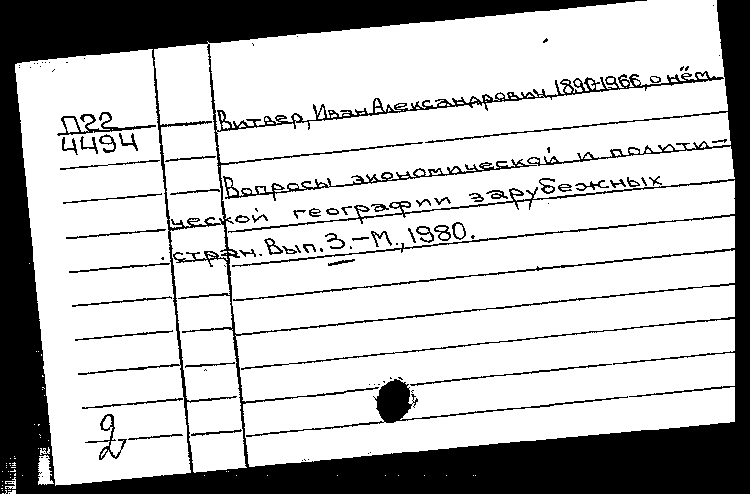 Витвер, Иван Александрович, 1890-1966, о нём.
П22
4494
Вопросы экономической и полити-
ческой географии зарубежных
стран. Вып. 3. - М., 1980.
2